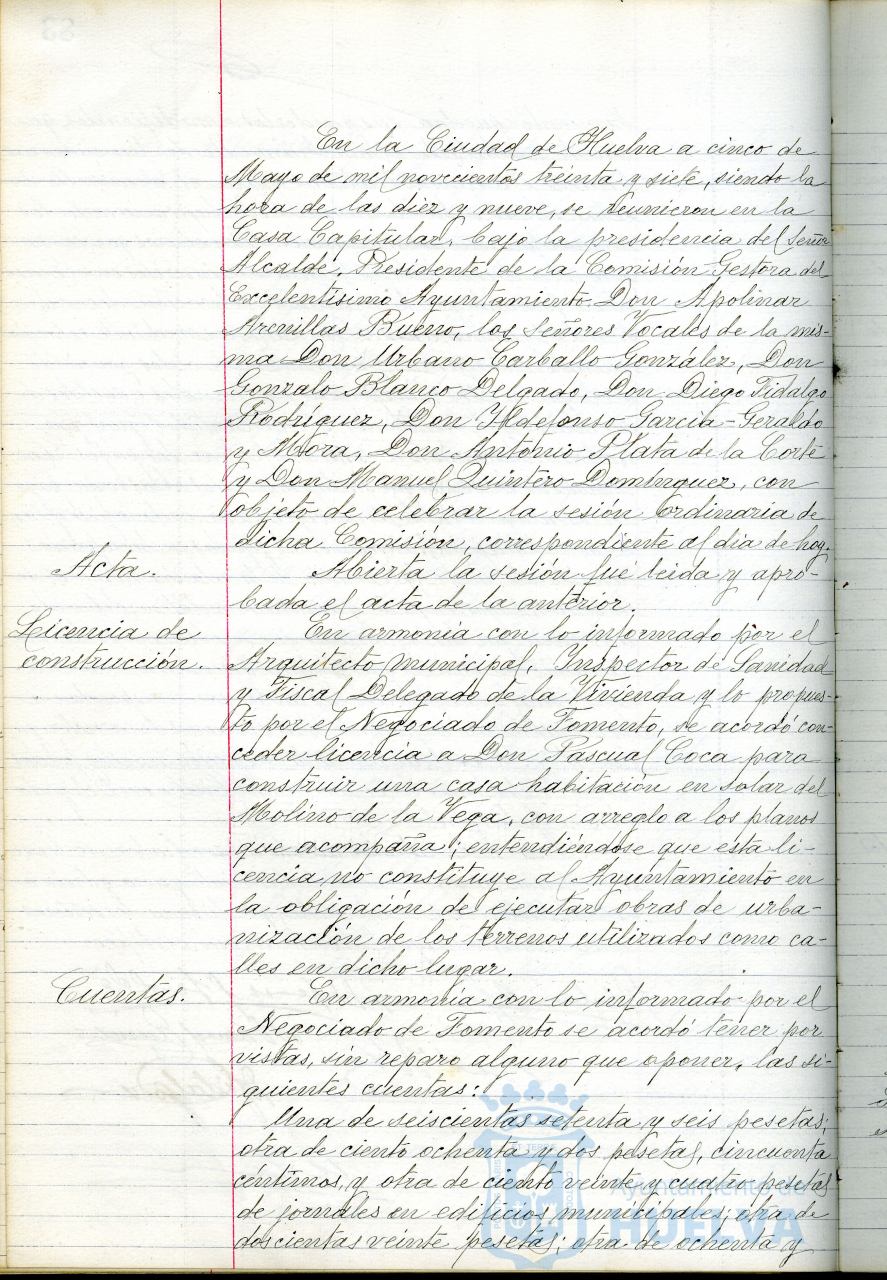 En la Ciudad de Huelva a cinco de
Mayo de mil novecientos treinta y siete, siendo la
hora de las diez y nueve, se reunieron en la
Casa Capitular, bajo la presidencia del Señor
Alcalde, Presidente de la Comisión Gestora del
Excelentísimo Ayuntamiento Don Apolinar
Arenillas Bueno, los Señores Vocales de la mis-
ma Don Urbano Carballo González, Don
Gonzalo Blanco Delgado, Don Diego Fidalgo
Rodríguez, Don Ildefonso García-Geraldo
y Mora, Don Antonio Plata de la Corte
y Don Manuel Quintero Domínguez, con
objeto de celebrar la sesión ordinaria de
dicha Comisión, correspondiente al día de hoy.
Acta.
Abierta la sesión fué leida y apro-
bada el acta de la anterior.
Licencia de
construcción.
En armonía con lo informado por el
Arquitecto municipal, Inspector de Sanidad
y Fiscal Delegado de la Vivienda y lo propues-
to por el Negociado de Fomento, se acordó con-
ceder licencia a Don Pascual Coca para
construir una casa habitación en solar del
Molino de la Vega, con arreglo a los planos
que acompaña; entendiéndose que esta li-
cencia no constituye al Ayuntamiento en
la obligación de ejecutar obras de urba-
nización de los terrenos utilizados como ca-
lles en dicho lugar.
Cuentas.
En armonía con lo informado por el
Negociado de Fomento se acordó tener por
vistas, sin reparo alguno que oponer, las si-
guientes cuentas:
Una de seiscientas setenta y seis pesetas;
otra de ciento ochenta y dos pesetas, cincuenta
céntimos, y otra de ciento veinte y cuatro pesetas
de jornales en edificios municipales; otra de
doscientas veinte pesetas; otra de ochenta y
Ayuntamiento de
HUELVA